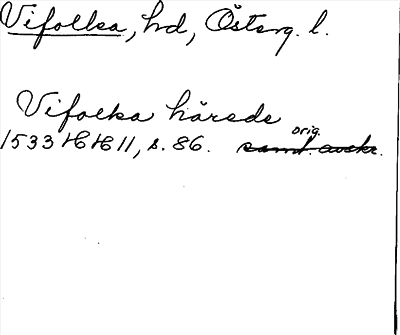 Vifolka, hd, Österg. l.
Vifolka härede
orig.
1533 HH 11, s. 86. samt. avskr.